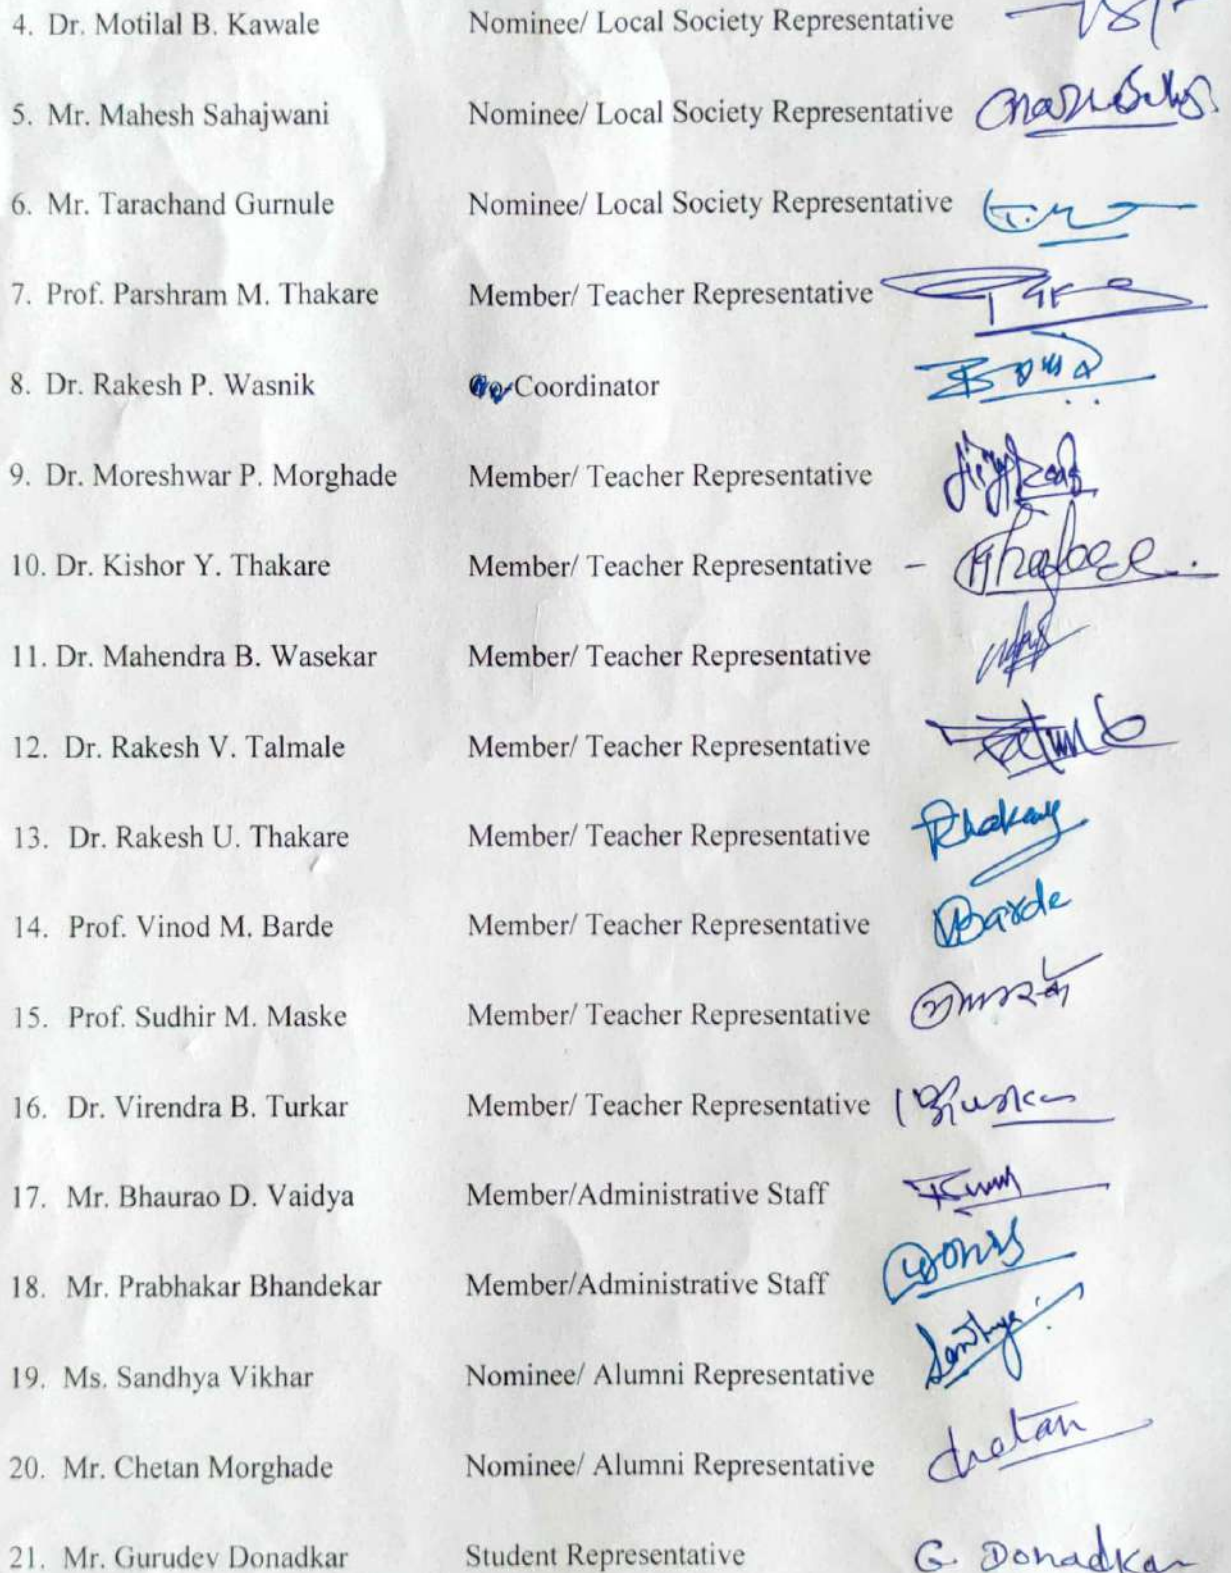 4. Dr. Motilal B. Kawale Nominee/ Local Society Representative
5. Mr. Mahesh Sahajwani Nominee/ Local Society Representative
6. Mr. Tarachand Gurnule Nominee/ Local Society Representative
7. Prof. Parshram M. Thakare Member/ Teacher Representative
8. Dr. Rakesh P. Wasnik Coordinator
9. Dr. Moreshwar P. Morghade Member/ Teacher Representative
10. Dr. Kishor Y. Thakare Member/ Teacher Representative -
11. Dr. Mahendra B. Wasekar Member/ Teacher Representative
12. Dr. Rakesh V. Talmale Member/ Teacher Representative
13. Dr. Rakesh U. Thakare Member/ Teacher Representative
14. Prof. Vinod M. Barde Member/ Teacher Representative Barde
15. Prof. Sudhir M. Maske Member/ Teacher Representative
16. Dr. Virendra B. Turkar Member/ Teacher Representative
17. Mr. Bhaurao D. Vaidya Member/Administrative Staff
18. Mr. Prabhakar Bhandekar Member/Administrative Staff
19. Ms. Sandhya Vikhar Nominee/ Alumni Representative Sandhya
20. Mr. Chetan Morghade Nominee/ Alumni Representative Chetan
21. Mr. Gurudev Donadkar Student Representative G. Donadkar